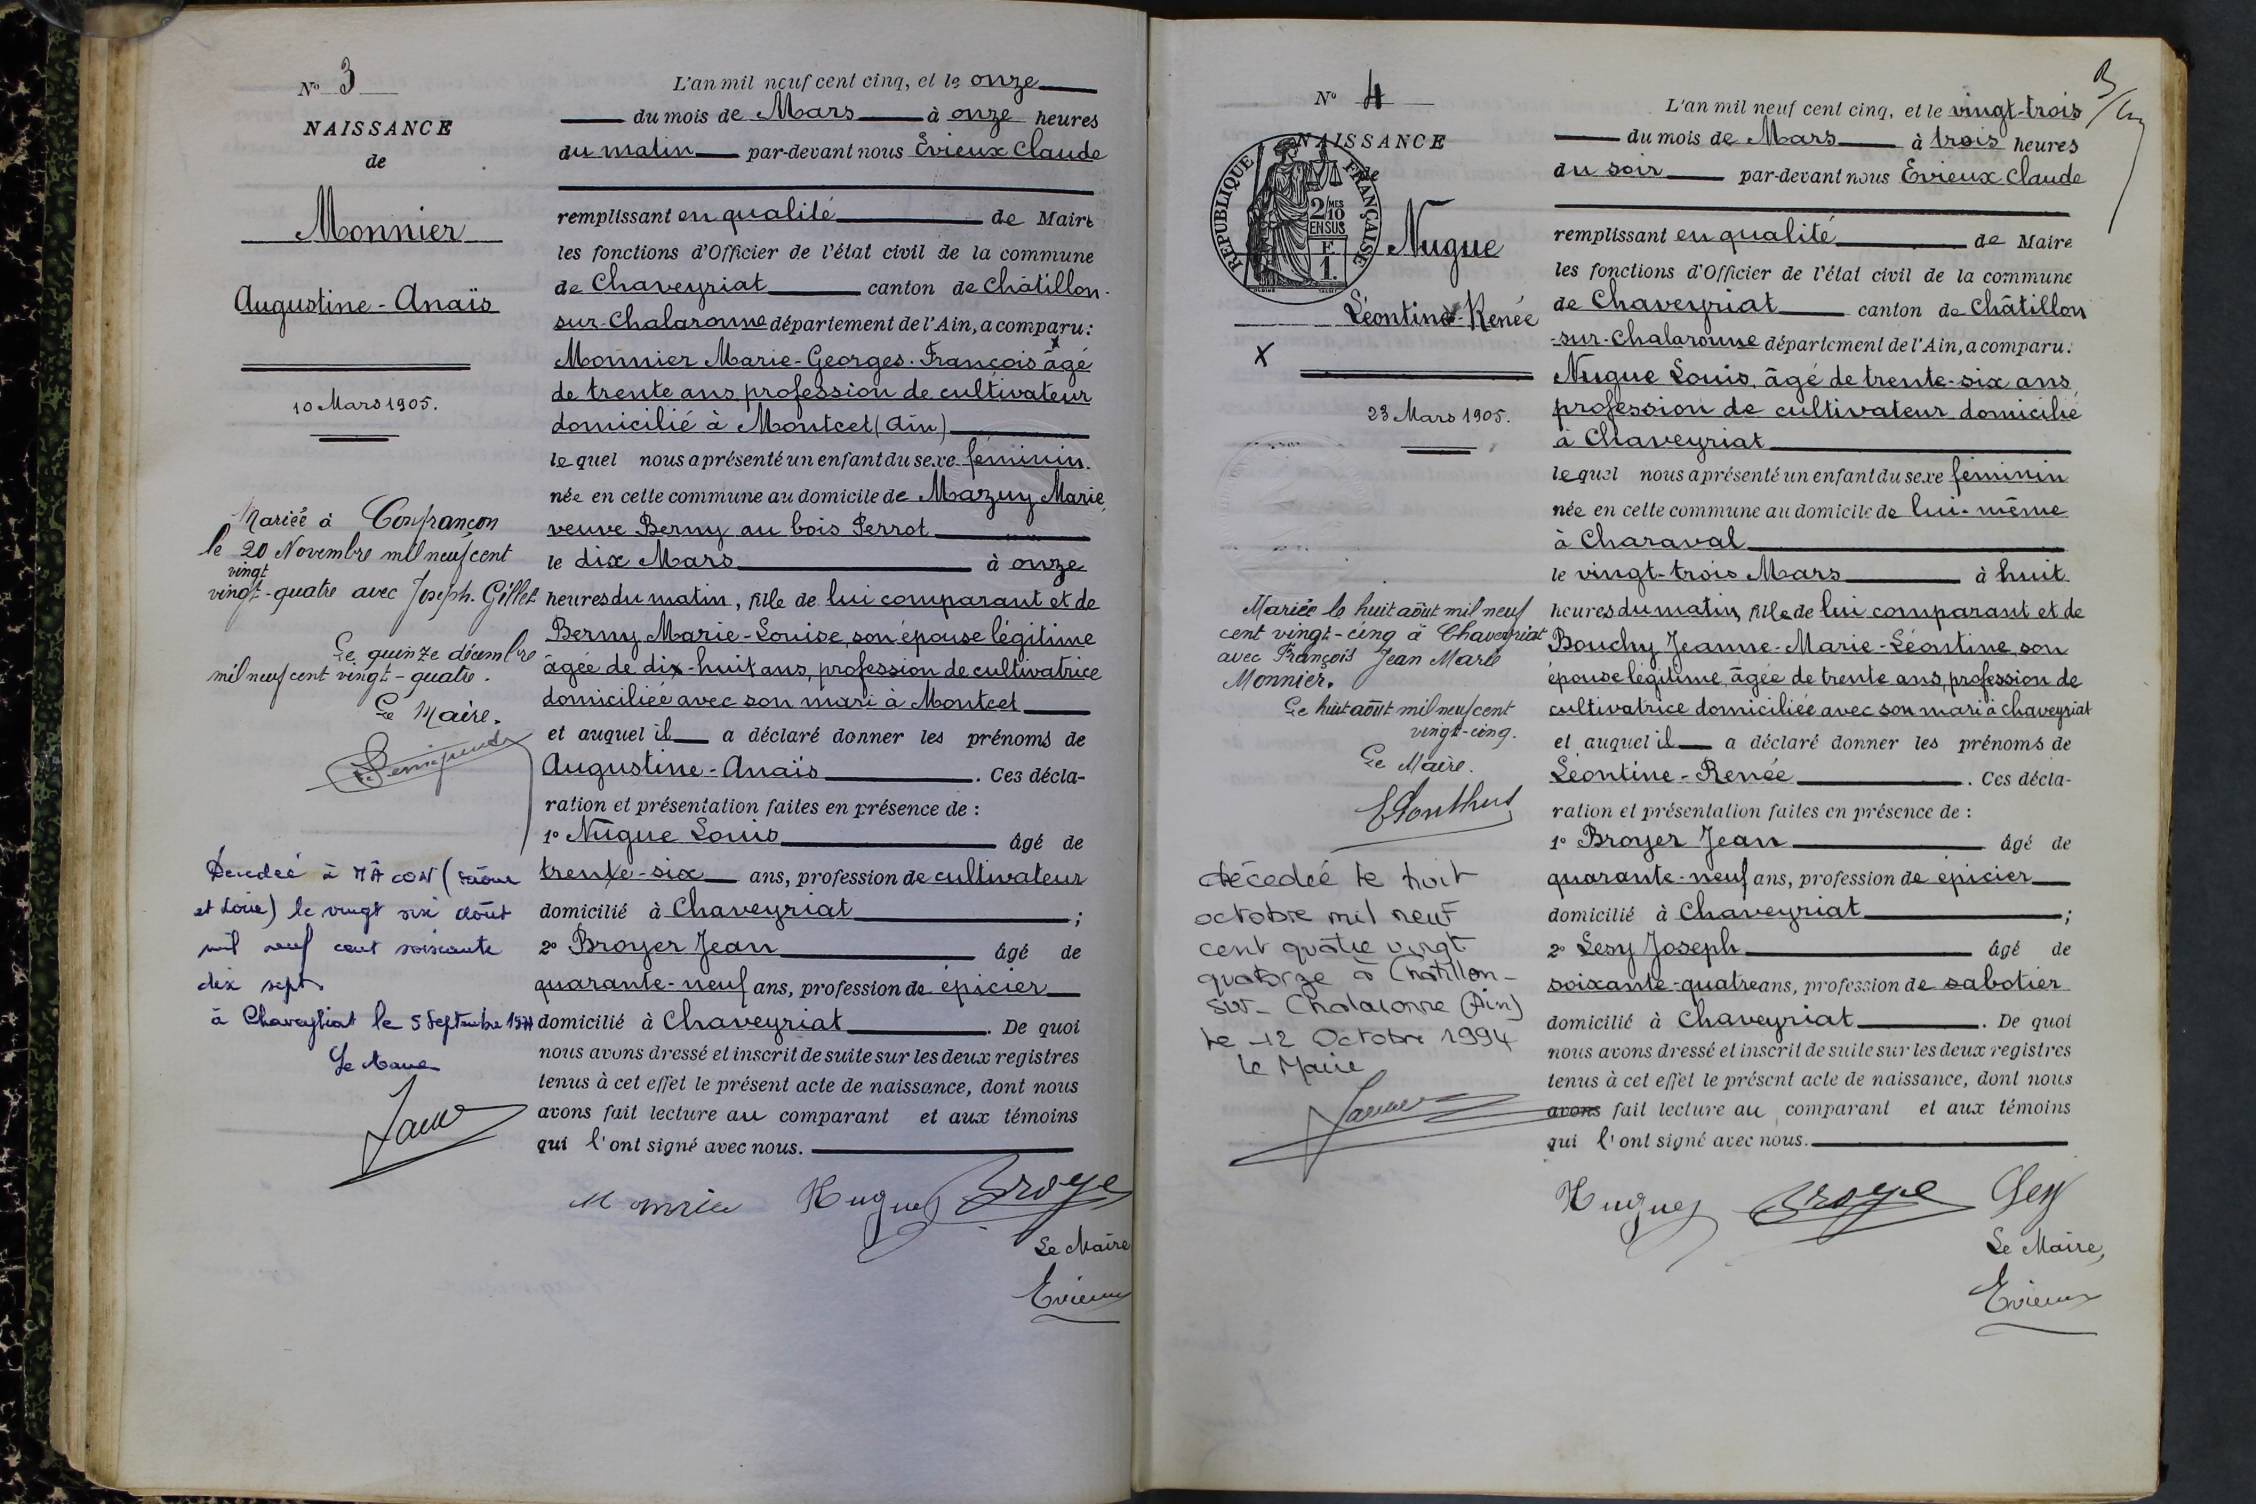 N° 3
NAISSANCE
de
Monnier
Augustine-Anaïs
10 Mars 1905.
Mariée à Confrançon
le 20 Novembre mil neuf cent
vingt
vingt-quatre avec Joseph Gillet
Le quinze décembre
mil neuf cent vingt-quatre.
Le Maire.
Décédée à MÂCON (Saône
et Loire) le vingt six août
mil neuf cent soixante
dix sept
à Chaveyriat le 5 Septembre 1977
Le Maire
L'an mil neuf cent cinq, et le onze
du mois de Mars à onze heures
du matin par-devant nous Evieux Claude
remplissant en qualité de Maire
les fonctions d'Officier de l'état civil de la commune
de Chaveyriat canton de Châtillon-
sur-Chalaronne département de l'Ain, a comparu:
Monnier Marie-Georges-François âgé
de trente ans profession de cultivateur
domicilié à Montcet (Ain)
lequel nous a présenté un enfant du sexe féminin.
née en cette commune au domicile de Mazuy Marie,
veuve Berny au bois Perrot
le dix Mars à onze
heures du matin, fille de lui comparant et de
Berny Marie-Louise, son épouse légitime
âgée de dix-huit ans, profession de cultivatrice
domiciliée avec son mari à Montcet
et auquel il a déclaré donner les prénoms de
Augustine-Anaïs. Ces décla-
ration et présentation faites en présence de:
1° Nugue Louis âgé de
trente-six ans, profession de cultivateur
domicilié à Chaveyriat;
2° Broyer Jean âgé de
quarante-neuf ans, profession de épicier
domicilié à Chaveyriat. De quoi
nous avons dressé et inscrit de suite sur les deux registres
tenus à cet effet le présent acte de naissance, dont nous
avons fait lecture au comparant et aux témoins
qui l'ont signé avec nous.
Monnier Nugue Broye
Le Maire
Evieux
3
N° 4
NAISSANCE
de
REPUBLIQUE FRANÇAISE
2/MES
10
EN SUS
F.
1.
Nugue
Léontine-Renée
X
23 Mars 1905.
Mariée le huit août mil neuf
cent vingt-cinq à Chaveyriat
avec François Jean Marie
Monnier.
Le huit août mil neuf cent
vingt-cinq.
Le Maire.
décédée le huit
octobre mil neuf
cent quatre vingt
quatorze à Chatillon-
sur-Chalaronne (Ain)
Le 12 Octobre 1994
Le Maire
L'an mil neuf cent cinq, et le vingt-trois
du mois de Mars à trois heures
du soir par-devant nous Evieux Claude
remplissant en qualité de Maire
les fonctions d'Officier de l'état civil de la commune
de Chaveyriat canton de Châtillon
-sur-Chalaronne département de l'Ain, a comparu:
Nugue Louis, âgé de trente-six ans,
profession de cultivateur domicilié
à Chaveyriat
lequel nous a présenté un enfant du sexe féminin
née en cette commune au domicile de lui-même
à Charaval
le vingt-trois Mars à huit
heures du matin, fille de lui comparant et de
Bouchy Jeanne-Marie-Léontine, son
épouse légitime, âgée de trente ans, profession de
cultivatrice domiciliée avec son mari à Chaveyriat
et auquel il a déclaré donner les prénoms de
Léontine-Renée. Ces décla-
ration et présentation faites en présence de:
1° Broyer Jean âgé de
quarante-neuf ans, profession de épicier
domicilié à Chaveyriat;
2° Lesy Joseph âgé de
soixante-quatre ans, profession de sabotier
domicilié à Chaveyriat. De quoi
nous avons dressé et inscrit de suite sur les deux registres
tenus à cet effet le présent acte de naissance, dont nous
avons fait lecture au comparant et aux témoins
qui l'ont signé avec nous.
Nugue Broye Lesy
Le Maire,
Evieux